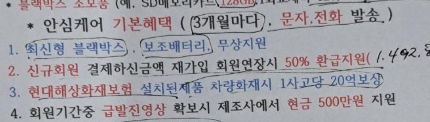 * 블랙박스 소모품 (예, SD메모리카드 128GB
* 안심케어 기본혜택 ( 3개월마다, 문자.전화 발송 )
1. 최신형 블랙박스, 보조배터리, 무상지원
2. 신규회원 결제하신금액 재가입 회원연장시 50% 환급지원( 1.492.8
3. 현대해상화재보험 설치된제품 차량화재시 1사고당 20억보상
4. 회원기간중 급발진영상 확보시 제조사에서 현금 500만원 지원